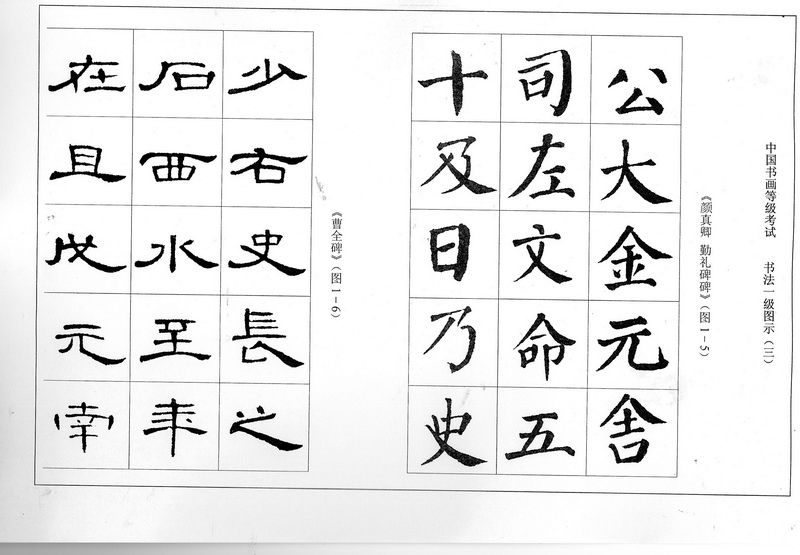 中国书画等级考试 书法一级图示（三）
《颜真卿 勤礼碑碑》（图1-5）
公大金元舍
司左文命五
十及日乃史
《曹全碑》（图1-6）
少右史長之
石西水至年
在且戊元幸